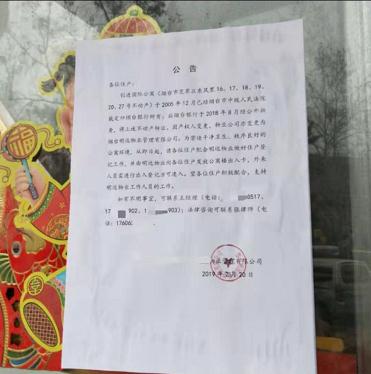 公 告
各位住户:
引进国际公寓(烟台市芝罘区东风里16、17、18、19、
20、27号不动产)于2005年12月已经烟台市中级人民法院
裁定归烟台银行所有;后烟台银行于2018年8月经公开拍
卖,将上述不动产转让,因产权人变更,物业公司亦变更为
烟台明达物业有限公司。为营造干净卫生、秩序良好的
公寓环境,从即日起,请各位住户配合明达物业做好住户登
记工作,并由明达物业向各位住户发放公寓楼出入卡,外来
人员需进行出入登记方可进入。望各位住户积极配合,支持
明达物业工作人员的工作。
如有不明事宜,可联系王经理(电话: 0517、
17 902、1 903);法律咨询可联系张律师(电
话:17606
有限公司
2019年2月20日